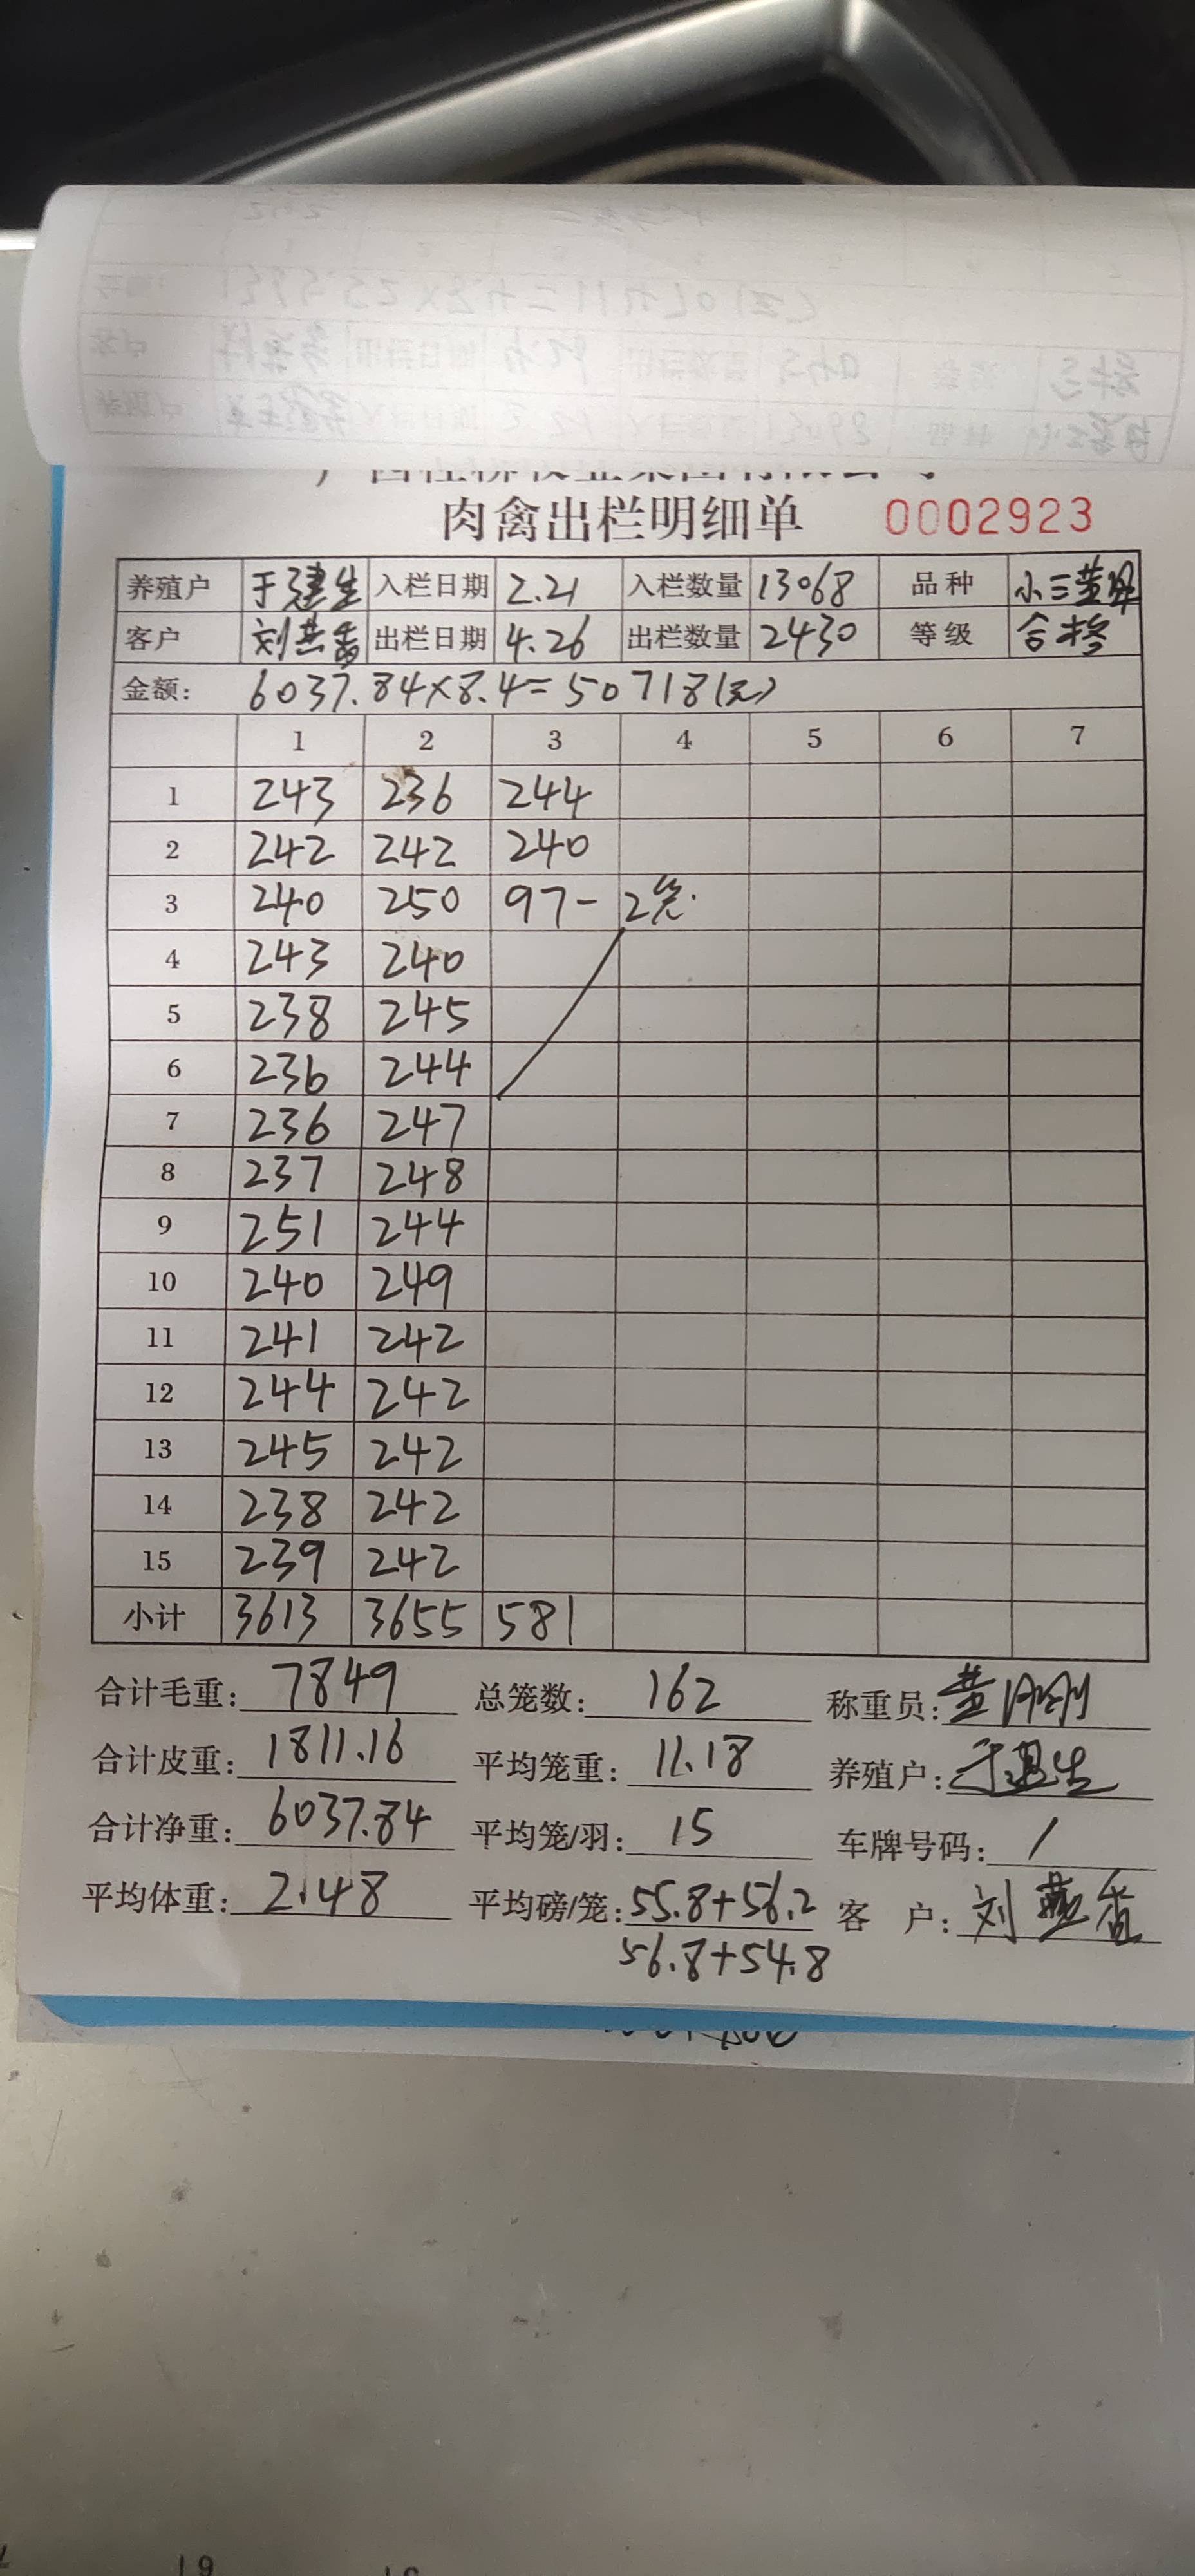 肉禽出栏明细单 0002923
养殖户 于建生 入栏日期 2.21 入栏数量 13068 品种 小三黄
客户 刘燕香 出栏日期 4.26 出栏数量 2430 等级 合格
金额: 6037.84×8.4=50718(元)
1 2 3 4 5 6 7
1 243 236 244
2 242 242 240
3 240 250 97- 2笼.
4 243 240
5 238 245
6 236 244
7 236 247
8 237 248
9 251 244
10 240 249
11 241 242
12 244 242
13 245 242
14 238 242
15 239 242
小计 3613 3655 581
合计毛重: 7849 总笼数: 162 称重员: 黄刚
合计皮重: 1811.16 平均笼重: 11.18 养殖户: 于建生
合计净重: 6037.84 平均笼/羽: 15 车牌号码: /
平均体重: 2.48 平均磅/笼: 55.8+56.2 客 户: 刘燕香
56.8+54.8